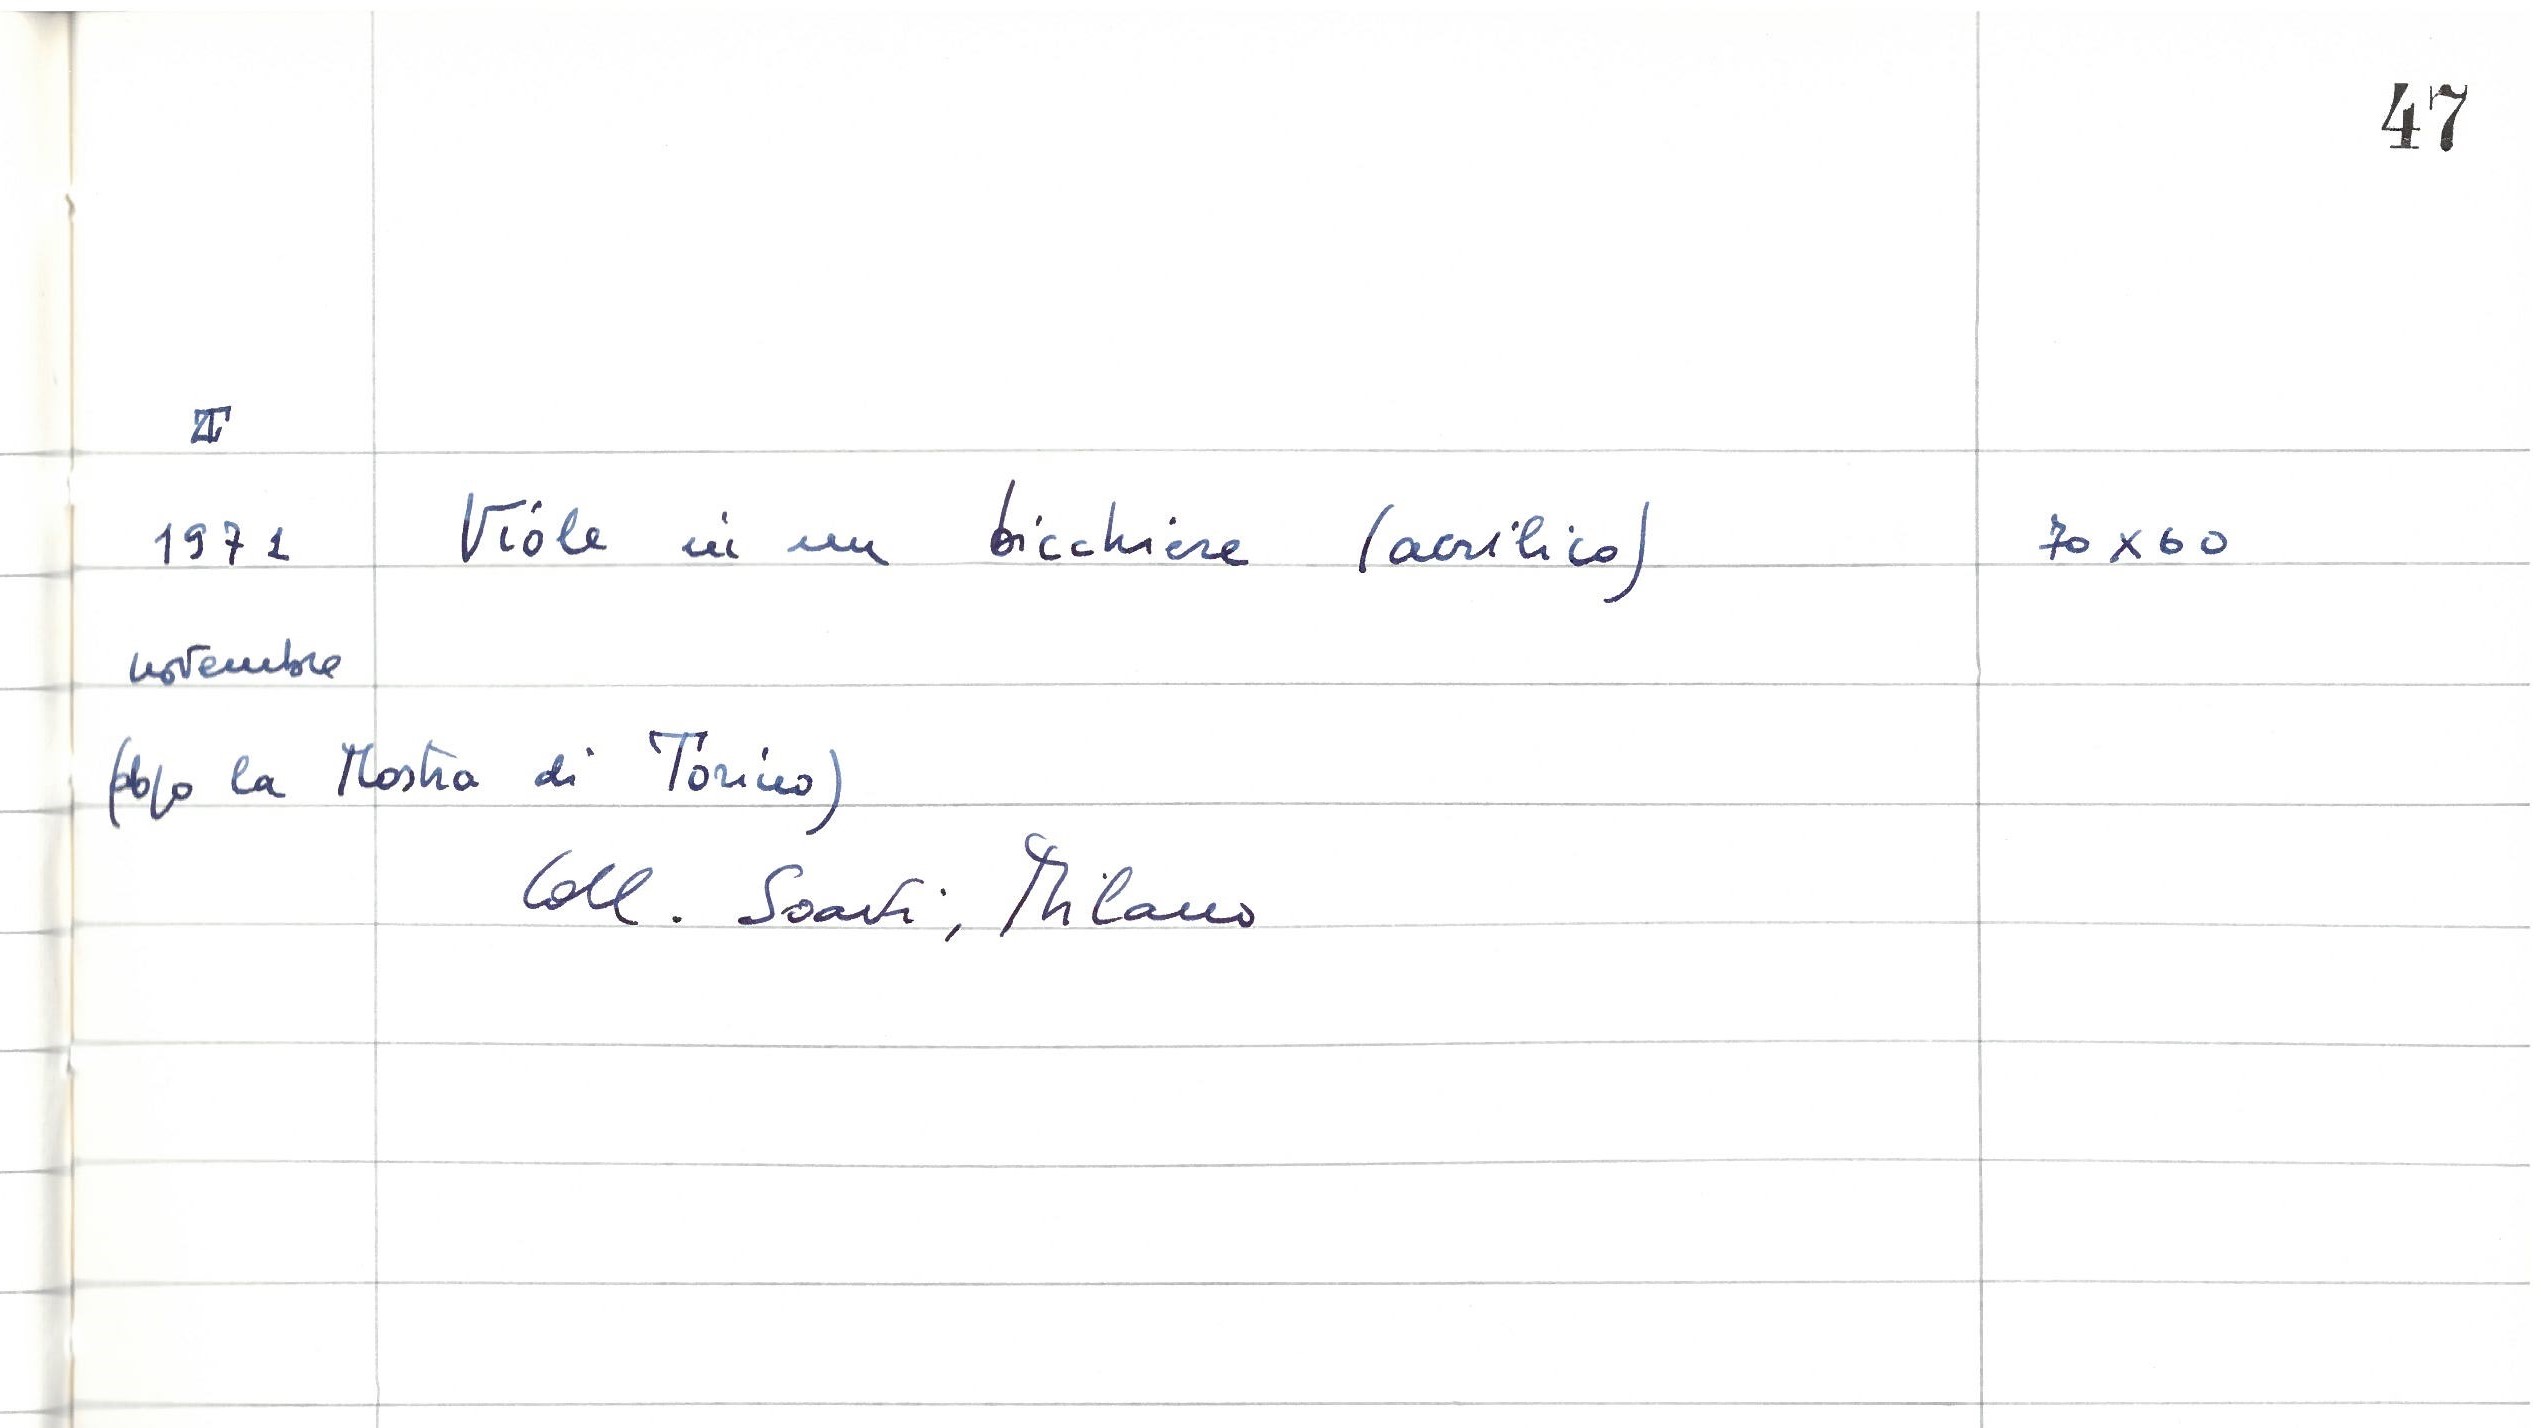 47
1971 Viole in un bicchiere (acrilico) 70 x 60
novembre
(dopo la Mostra di Torino)
Coll. Soavi, Milano